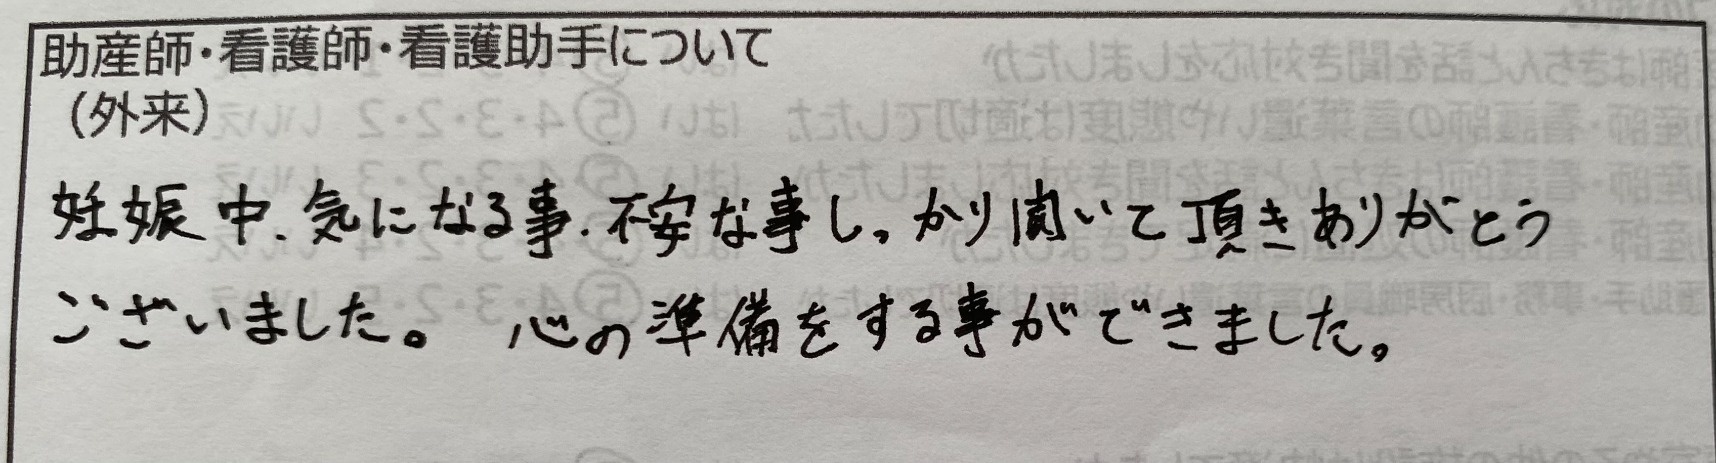 助産師・看護師・看護助手について
（外来）
妊娠中、気になる事、不安な事しっかり聞いて頂きありがとう
ございました。 心の準備をする事ができました。